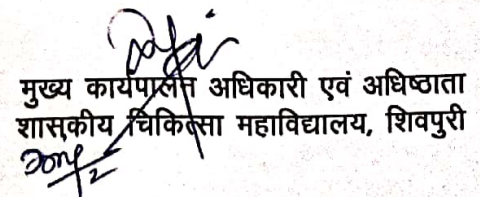 मुख्य कार्यपालन अधिकारी एवं अधिष्ठाता
शासकीय चिकित्सा महाविद्यालय, शिवपुरी